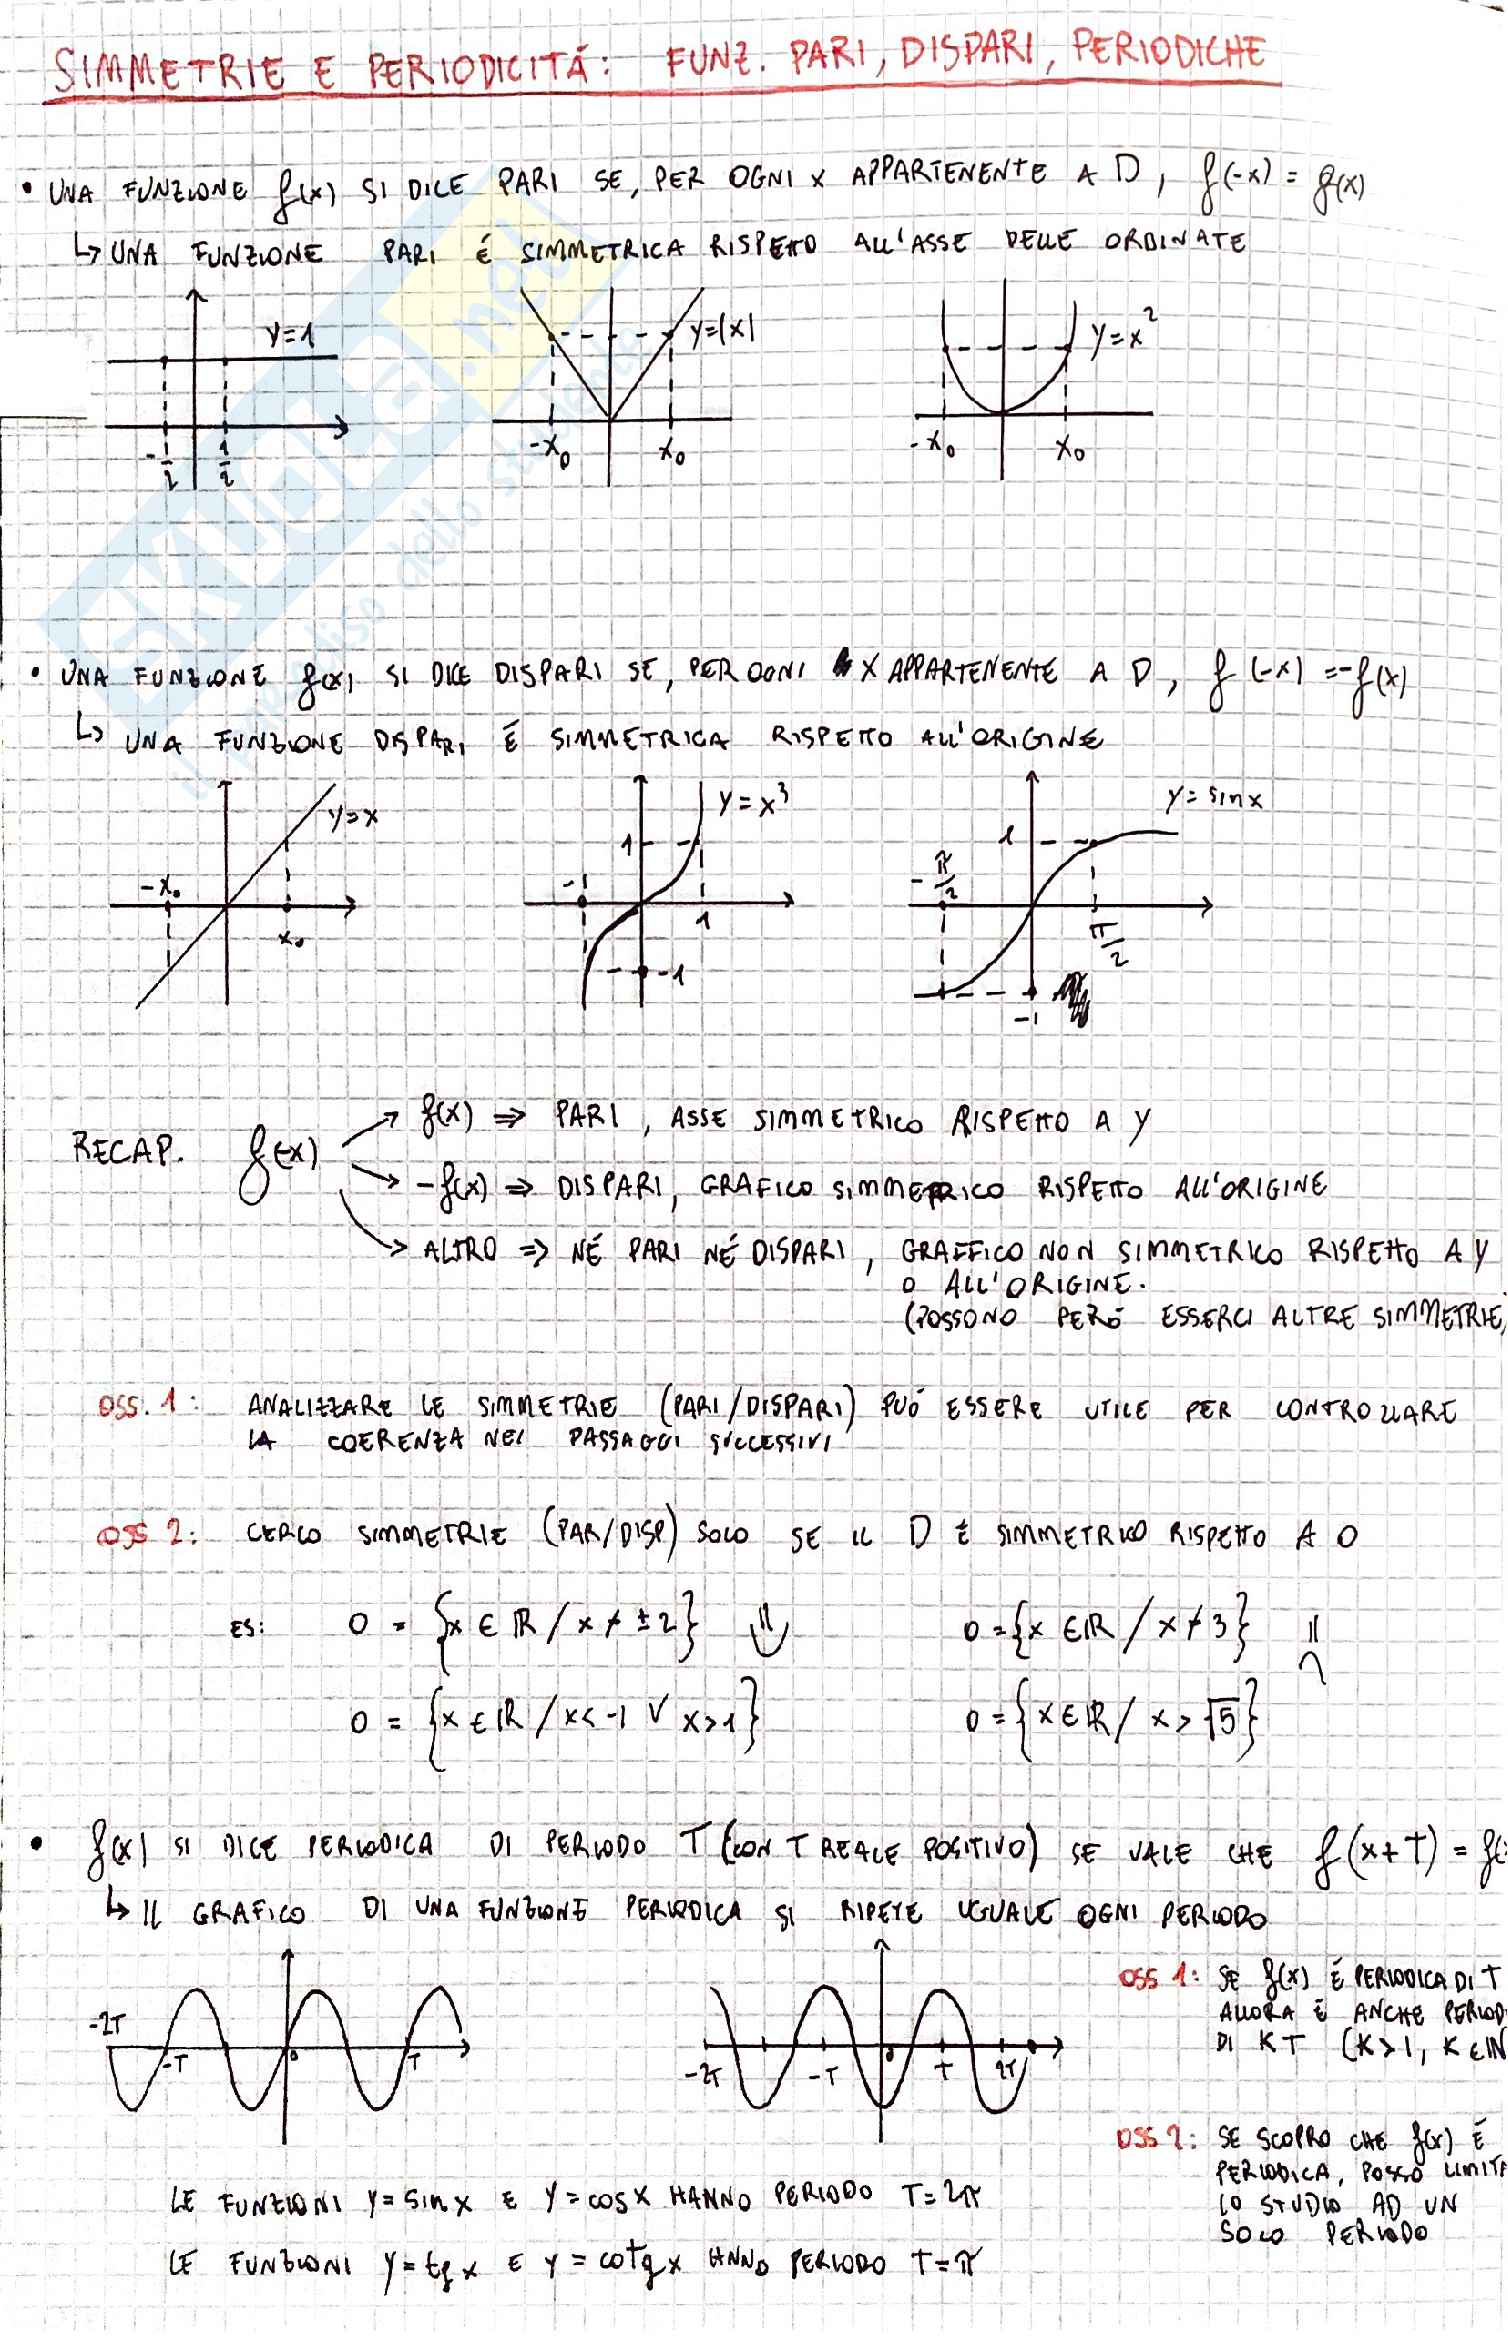 SIMMETRIE E PERIODICITÁ: FUNZ. PARI, DISPARI, PERIODICHE
• UNA FUNZIONE f(x) SI DICE PARI SE, PER OGNI x APPARTENENTE A D, f(-x) = f(x)
↳ UNA FUNZIONE PARI É SIMMETRICA RISPETTO ALL'ASSE DELLE ORDINATE
y=1
-1/2 1/2
y=|x|
-x₀ x₀
y=x²
-x₀ x₀
SKUOLA.net
• UNA FUNZIONE f(x) SI DICE DISPARI SE, PER OGNI x APPARTENENTE A D, f(-x) = -f(x)
↳ UNA FUNZIONE DISPARI É SIMMETRICA RISPETTO ALL'ORIGINE
y=x
-x₀ x₀
y=x³
1
-1 1
-1
y=sinx
1
-π/2 π/2
-1
RECAP. f(-x)
→ f(x) ⇒ PARI, ASSE SIMMETRICO RISPETTO A Y
→ -f(x) ⇒ DISPARI, GRAFICO SIMMETRICO RISPETTO ALL'ORIGINE
→ ALTRO ⇒ NÉ PARI NÉ DISPARI, GRAFFICO NON SIMMETRICO RISPETTO A Y
O ALL'ORIGINE.
(POSSONO PERÓ ESSERCI ALTRE SIMMETRIE)
OSS. 1: ANALIZZARE LE SIMMETRIE (PARI/DISPARI) PUÓ ESSERE UTILE PER CONTROLLARE
LA COERENZA NEI PASSAGGI SUCCESSIVI
OSS 2: CERCO SIMMETRIE (PAR/DISP) SOLO SE IL D É SIMMETRICO RISPETTO A O
ES: D = {x ∈ ℝ / x ≠ ±2} D = {x ∈ ℝ / x ≠ 3}
D = {x ∈ ℝ / x < -1 ∨ x > 1} D = {x ∈ ℝ / x > √5}
• f(x) SI DICE PERIODICA DI PERIODO T (CON T REALE POSITIVO) SE VALE CHE f(x+T) = f(
↳ IL GRAFICO DI UNA FUNZIONE PERIODICA SI RIPETE UGUALE OGNI PERIODO
-2T -T 0 T
-2T -T 0 T 2T
OSS 1: SE f(x) É PERIODICA DI T
ALLORA É ANCHE PERIOD
DI KT (K>1, K∈ℕ
OSS 2: SE SCOPRO CHE f(x) É
PERIODICA, POSSO LIMITA
LO STUDIO AD UN
SOLO PERIODO
LE FUNZIONI y=sinx E y=cosx HANNO PERIODO T=2π
LE FUNZIONI y=tgx E y=cotgx HNNO PERIODO T=π